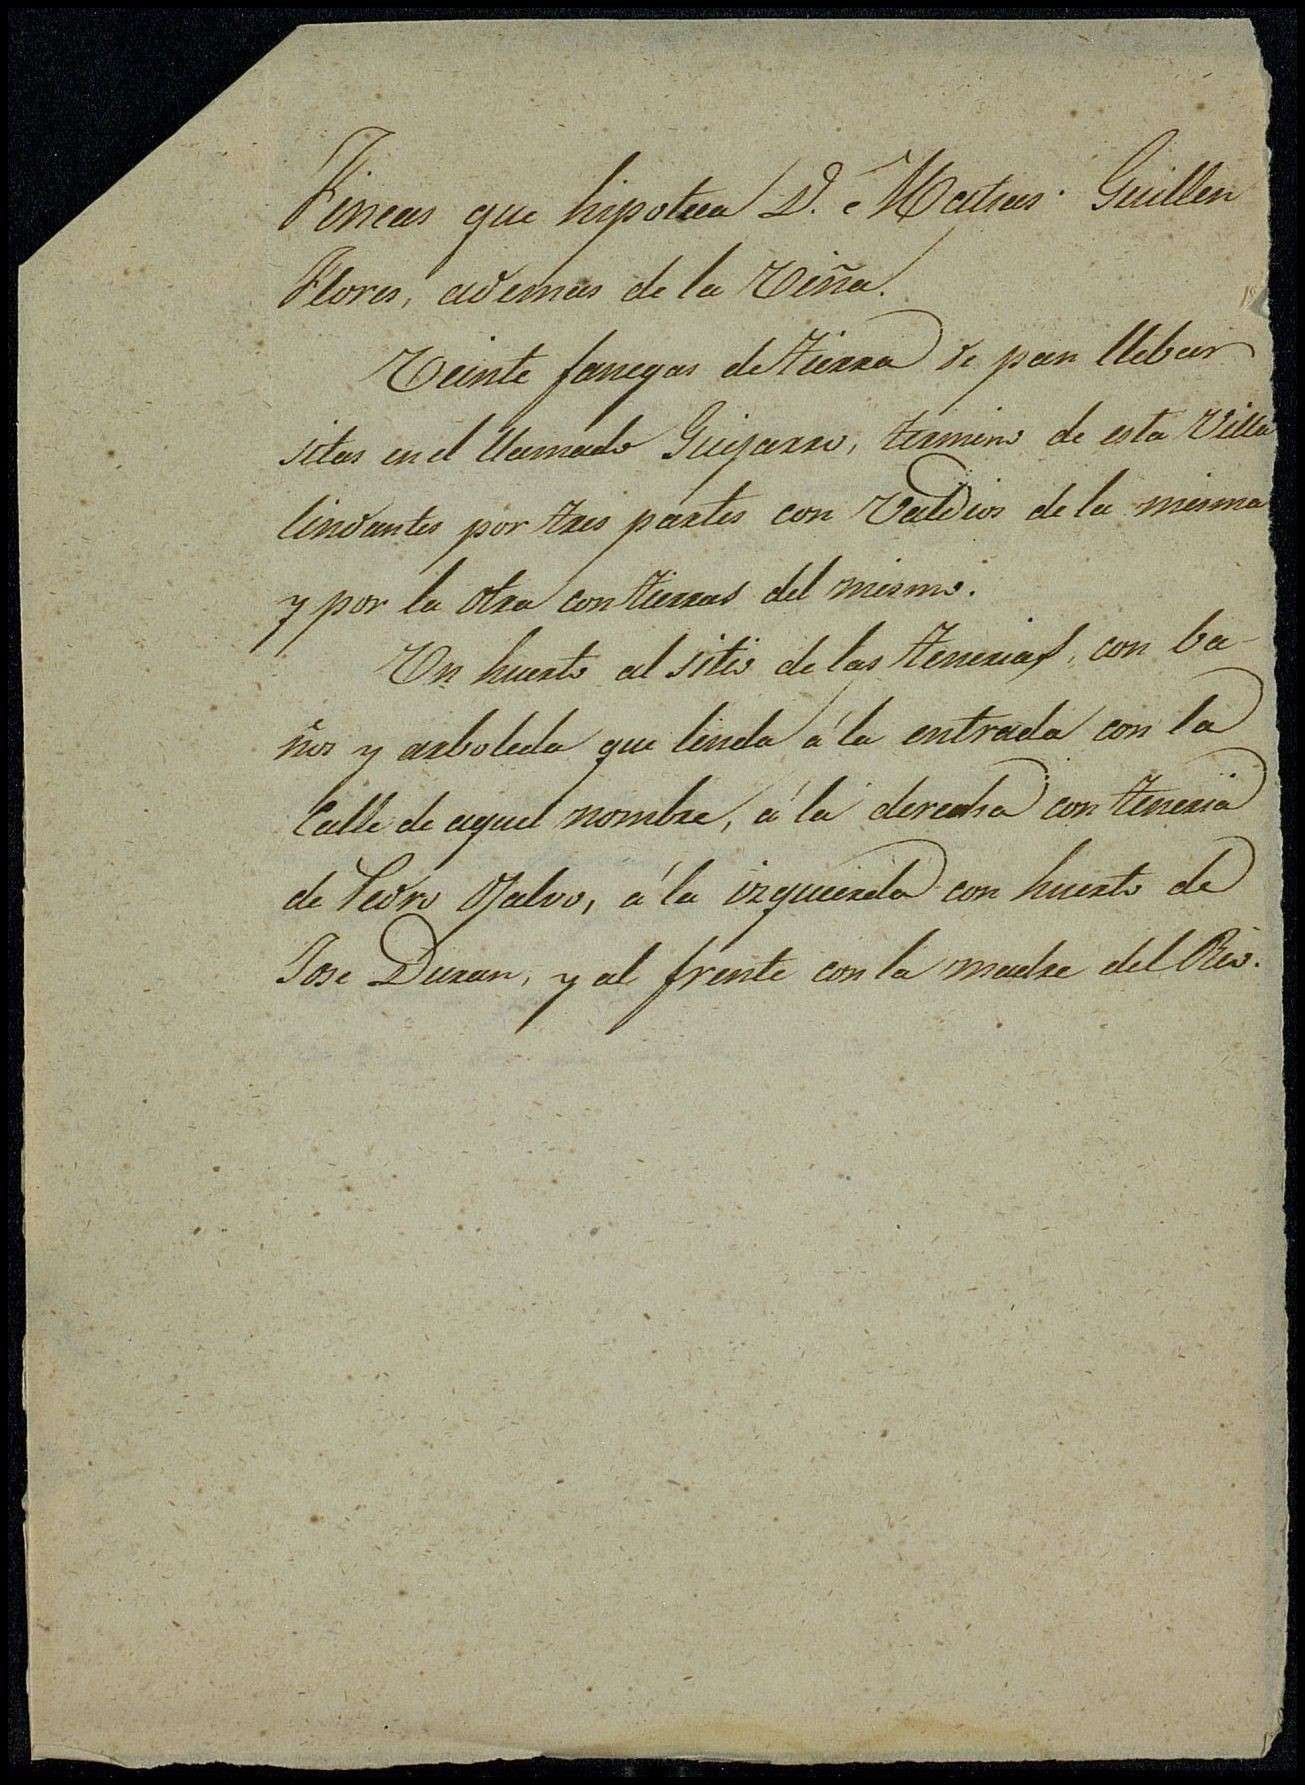 Fincas que hipoteca D. Matias Guillen
Flores, ademas de la Viña.
Veinte fanegas de tierra de pan llebar
sitas en el llamado Guijarro, termino de esta Villa
lindantes por tres partes con Valdios de la misma
y por la otra con tierras del mismo.
Un huerto al sitio de las tenerias, con ba-
ños y arboleda que linda á la entrada con la
Calle de aquel nombre, á la derecha con teneria
de Pedro Ojalvo, á la izquierda con huerto de
Jose Duran, y al frente con la madre del Rio.